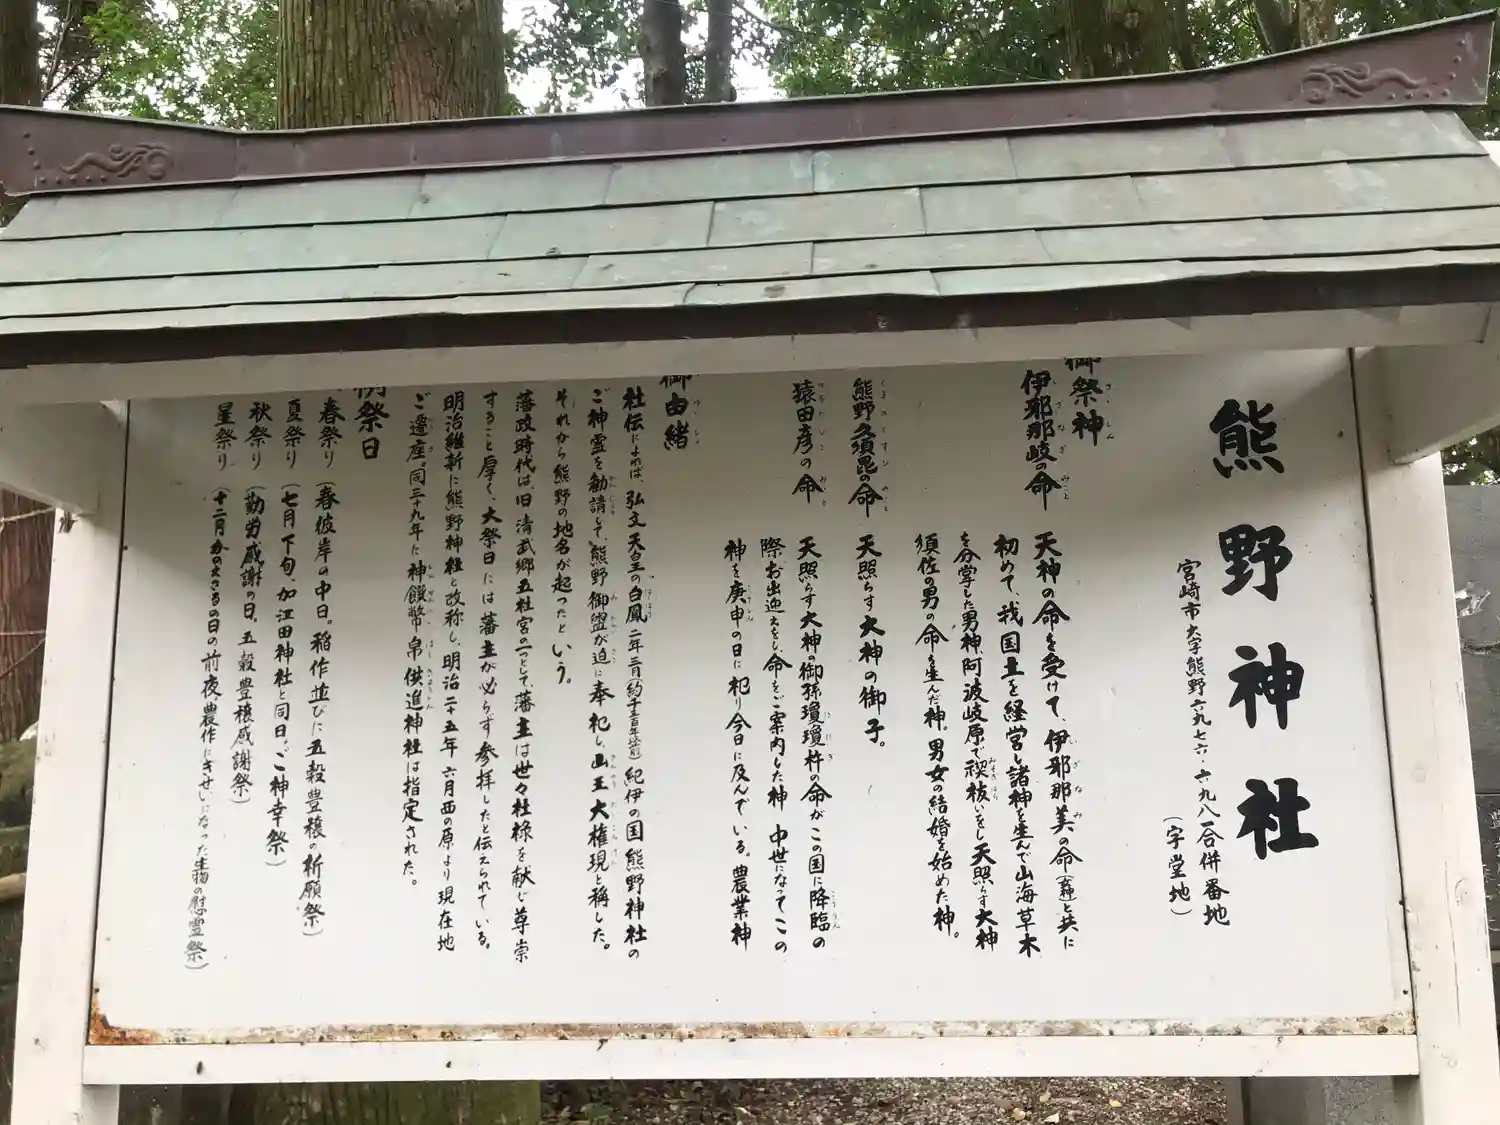 熊野神社
宮崎市大字熊野六九七六・六九八一合併番地
（字堂地）
御祭神
伊邪那岐の命　天神の命を受けて、伊邪那美の命(女神)と共に
初めて、我国土を経営し諸神を生んで山海草木
を分掌した男神、阿波岐原で禊祓いをし天照らす大神
須佐の男の命を生んだ神。男女の結婚を始めた神。
熊野久須昆の命　天照らす大神の御子。
猿田彦の命　天照らす大神の御孫瓊瓊杵の命がこの国に降臨の
際お出迎えをし、命をご案内した神　中世になってこの
神を庚申の日に祀り今日に及んでいる。農業神
御由緒
社伝によれば、弘文天皇の白鳳二年三月(約千三百年以前)紀伊の国熊野神社の
ご神霊を勧請して、熊野御盥が迫に奉祀し、山王大権現と称した。
それから熊野の地名が起ったという。
藩政時代は、旧清武郷五社宮の一つとして、藩主は世々社禄を献じ尊崇
すること厚く、大祭日には藩主が必らず参拝したと伝えられている。
明治維新に熊野神社と改称し、明治二十五年六月西の原より現在地
ご遷座。同三十九年に神饌幣帛供進神社は指定された。
例祭日
春祭り（春彼岸の中日。稲作並びに五穀豊穣の祈願祭）
夏祭り（七月下旬、加江田神社と同日。ご神幸祭）
秋祭り（勤労感謝の日、五穀豊穣感謝祭）
星祭り（十二月かのえさるの日の前夜、農作にぎせいになった生物の慰霊祭）